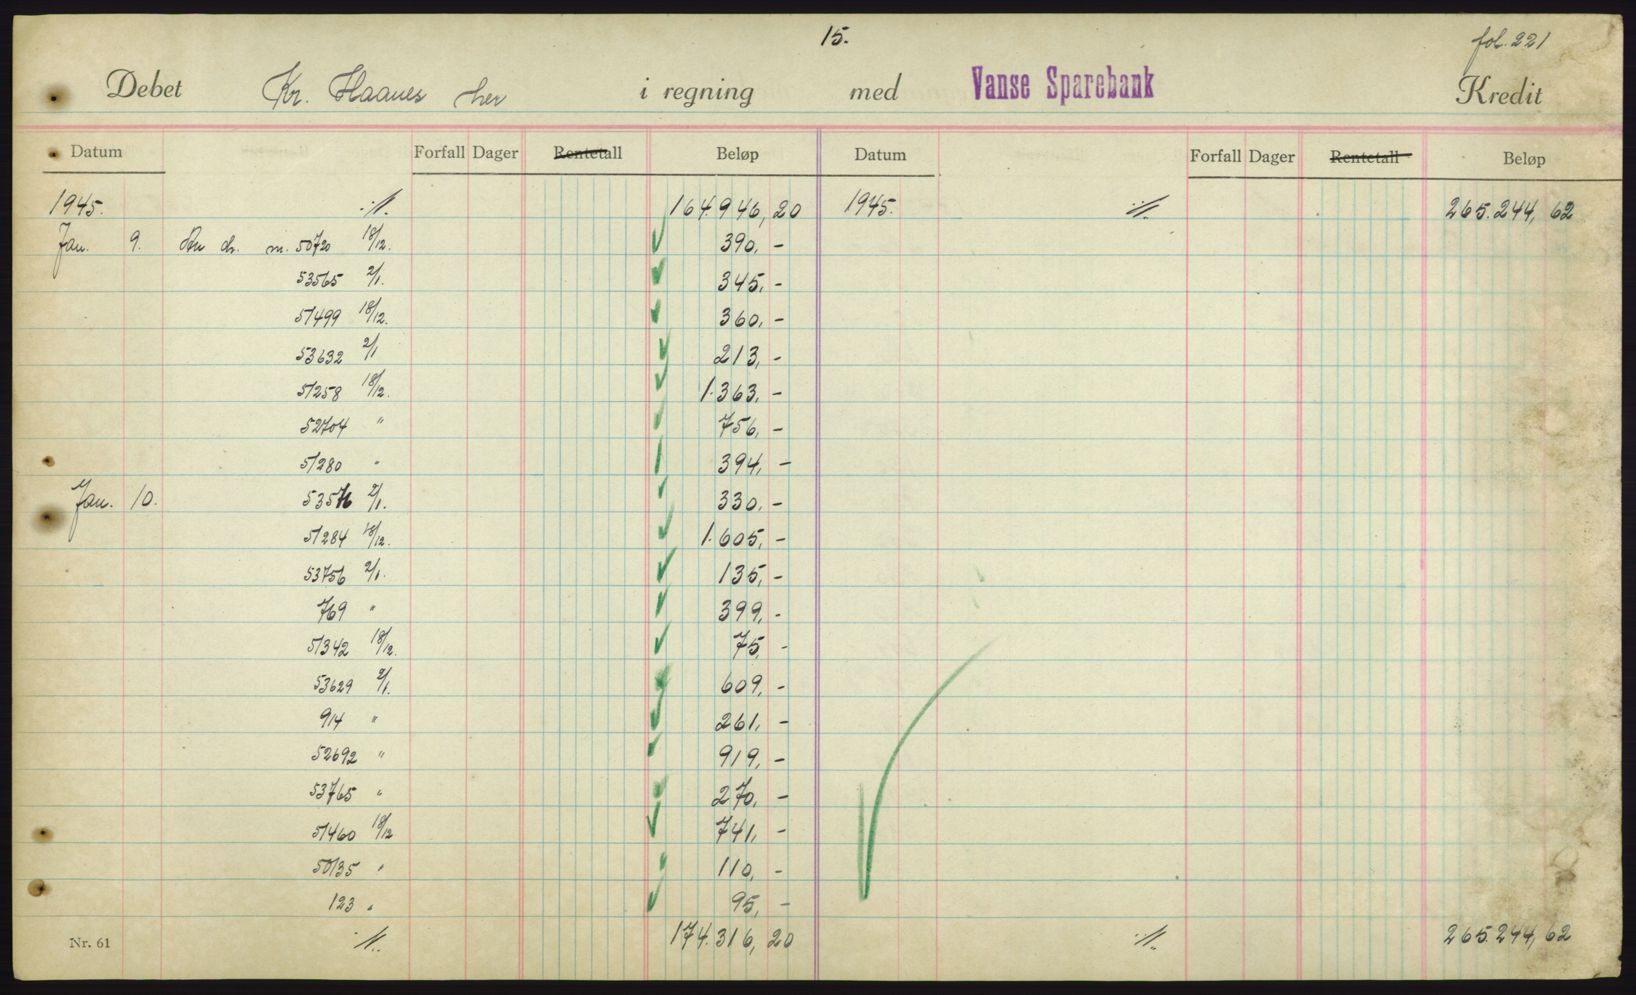 15.
fol. 221
Debet Kr. Haanes her i regning med Vanse Sparebank Kredit
Datum Forfall Dager Rentetall Beløp Datum Forfall Dager Rentetall Beløp
1945. ·//. 164.946,20 1945. ·//. 265.244,62
Jan. 9. m. 50720 18/12. 390,-
53565 2/1. 345,-
51499 18/12. 360,-
53632 2/1 213,-
51258 18/12. 1.363,-
52704 " 756,-
51280 " 394,-
Jan. 10. 53576 2/1. 330,-
51284 18/12. 1.605,-
53756 2/1. 135,-
769 " 399,-
51342 18/12. 75,-
53629 2/1. 609,-
914 " 261,-
52692 " 919,-
53765 " 270,-
51460 18/12 741,-
50135 " 110,-
123 " 95,-
Nr. 61 ·//. 174.316,20 ·//. 265.244,62